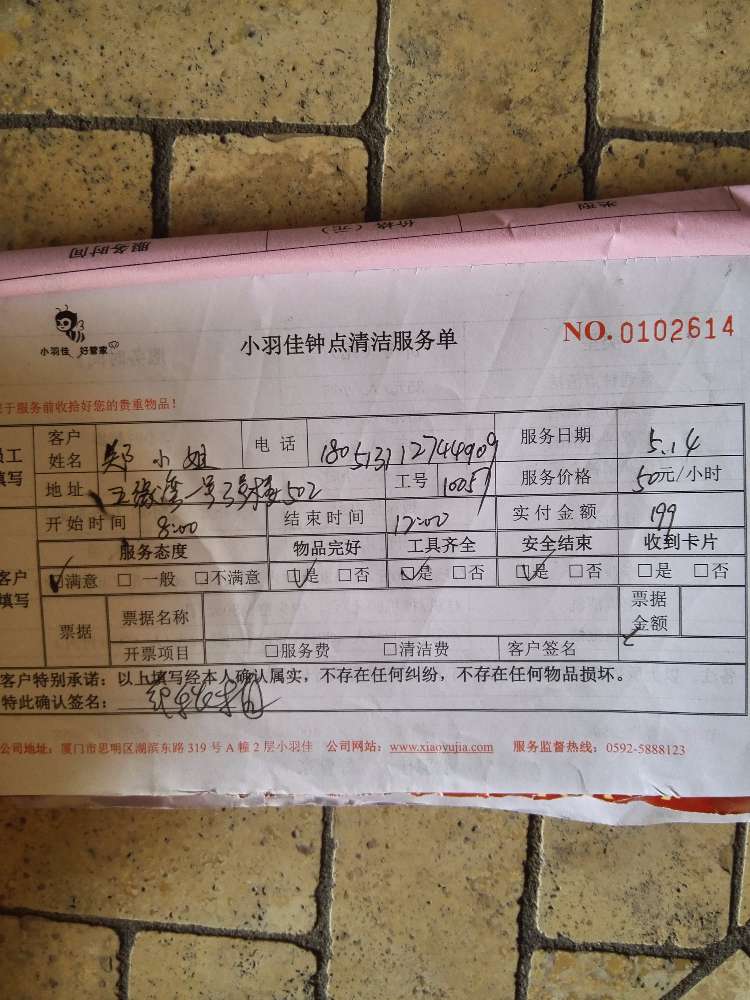 类型
价格（元）
服务时间
小羽佳 好管家
小羽佳钟点清洁服务单
NO. 0102614
于服务前收拾好您的贵重物品！
员工填写
客户姓名 郑小姐 电话 服务日期 5.14
地址 五缘湾一号 502 工号 10057 服务价格 50元/小时
开始时间 8:00 结束时间 12:00 实付金额 199
客户填写
服务态度 物品完好 工具齐全 安全结束 收到卡片
满意 □ 一般 □不满意 □是 □否 □是 □否 □是 □否 □是 □否
票据 票据名称 票据金额
开票项目 □服务费 □清洁费 客户签名
客户特别承诺：以上填写经本人确认属实，不存在任何纠纷，不存在任何物品损坏。
特此确认签名：
公司地址：厦门市思明区湖滨东路 319 号 A 幢 2 层小羽佳 公司网站：www.xiaoyujia.com 服务监督热线：0592-5888123